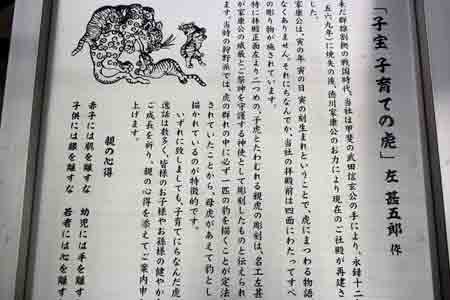 「子宝 子育ての虎」 左 甚五郎 作
未だ群雄割拠の戦国時代、当社は甲斐の武田信玄公の手により、永禄十二
五六九年)に焼失の後、徳川家康公のお力により現在のご社殿が再建さ
した。
家康公は、寅の年 寅の日 寅の刻生まれということで、虎にまつわる物語
なくありません。それにちなんでか、当社の拝殿前は四面にわたってすべ
の彫り物が施されています。
特に拝殿正面左より二つめの、「子虎とたわむれる親虎」の彫刻は、名工左甚
が家康公の威厳とご祭神を守護する神使として彫刻したものと伝えられ
ます。当時の狩野派では、虎の群れの中に必ず一匹の豹を描くことが定法
されていたことから、母虎があえて豹とし
描かれているのが特徴的です。
いずれに致しましても、子育てにちなんだ虎
逸話は数多く、皆様のお子様やお孫様の健やか
ご成長を祈り、親の心得を添えてご案内申
上げます。
親の心得
赤子には肌を離すな 幼児には手を離す
子供には眼を離すな 若者には心を離す